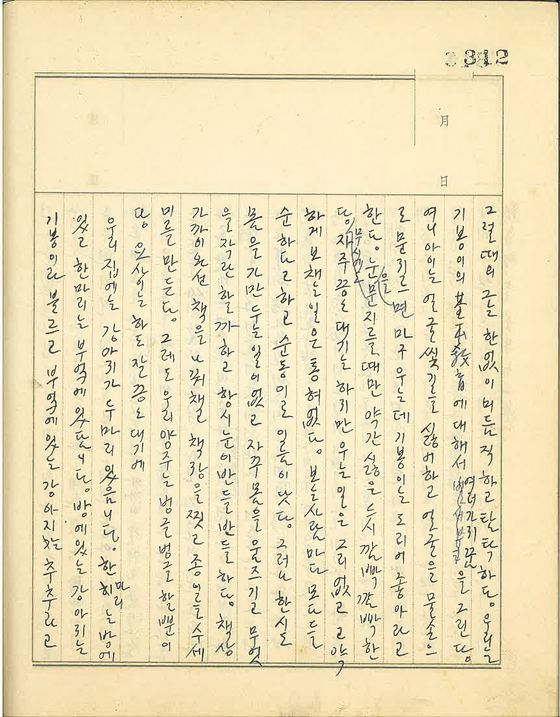 312
月
日
그럴때의 그는 한없이 미듬직 하고 탐탁하당. 우리는
기봉이의 敎育에 대해서 여러가지 꿈을 그린당
여니 아이는 얼굴 씿기를 싫어하고 얼굴을 물손으
로 문지르면 마구 우는데 기봉이는 도리어 좋아라고
한당. 눈을 문지를때만 약간 싫은 듯시 깜빡 깜빡 한
당. 무시로 자주 끙끙대기는 하지만 우는 일은 그리 없고 고약
하게 보채는 일은 통 혀 없당. 보는 사람마다 모다들
순하다고 하고 순동이로 이름이 낫당. 그러나 한시도
몸을 가만 두는 일이 없고 자꾸 몸을 움즈기고 무엇
을 작란 할까 하고 항시 눈이 반들반들 하당. 책상
가까이 오선 책을 나꿔채 책장을 찟고 종이를 수세
미를 만든당. 그래도 우리 양주는 벙글벙글 할뿐이
당. 요사이는 하도 잘 끙끙대기에
우리 집에는 강아지가 두마리 있음니당. 한마리는 방에
있고 한마리는 부엌에 있답니당. 방에 있는 강아지는
기봉이라 불르고 부엌에 있는 강아지는 추추라고